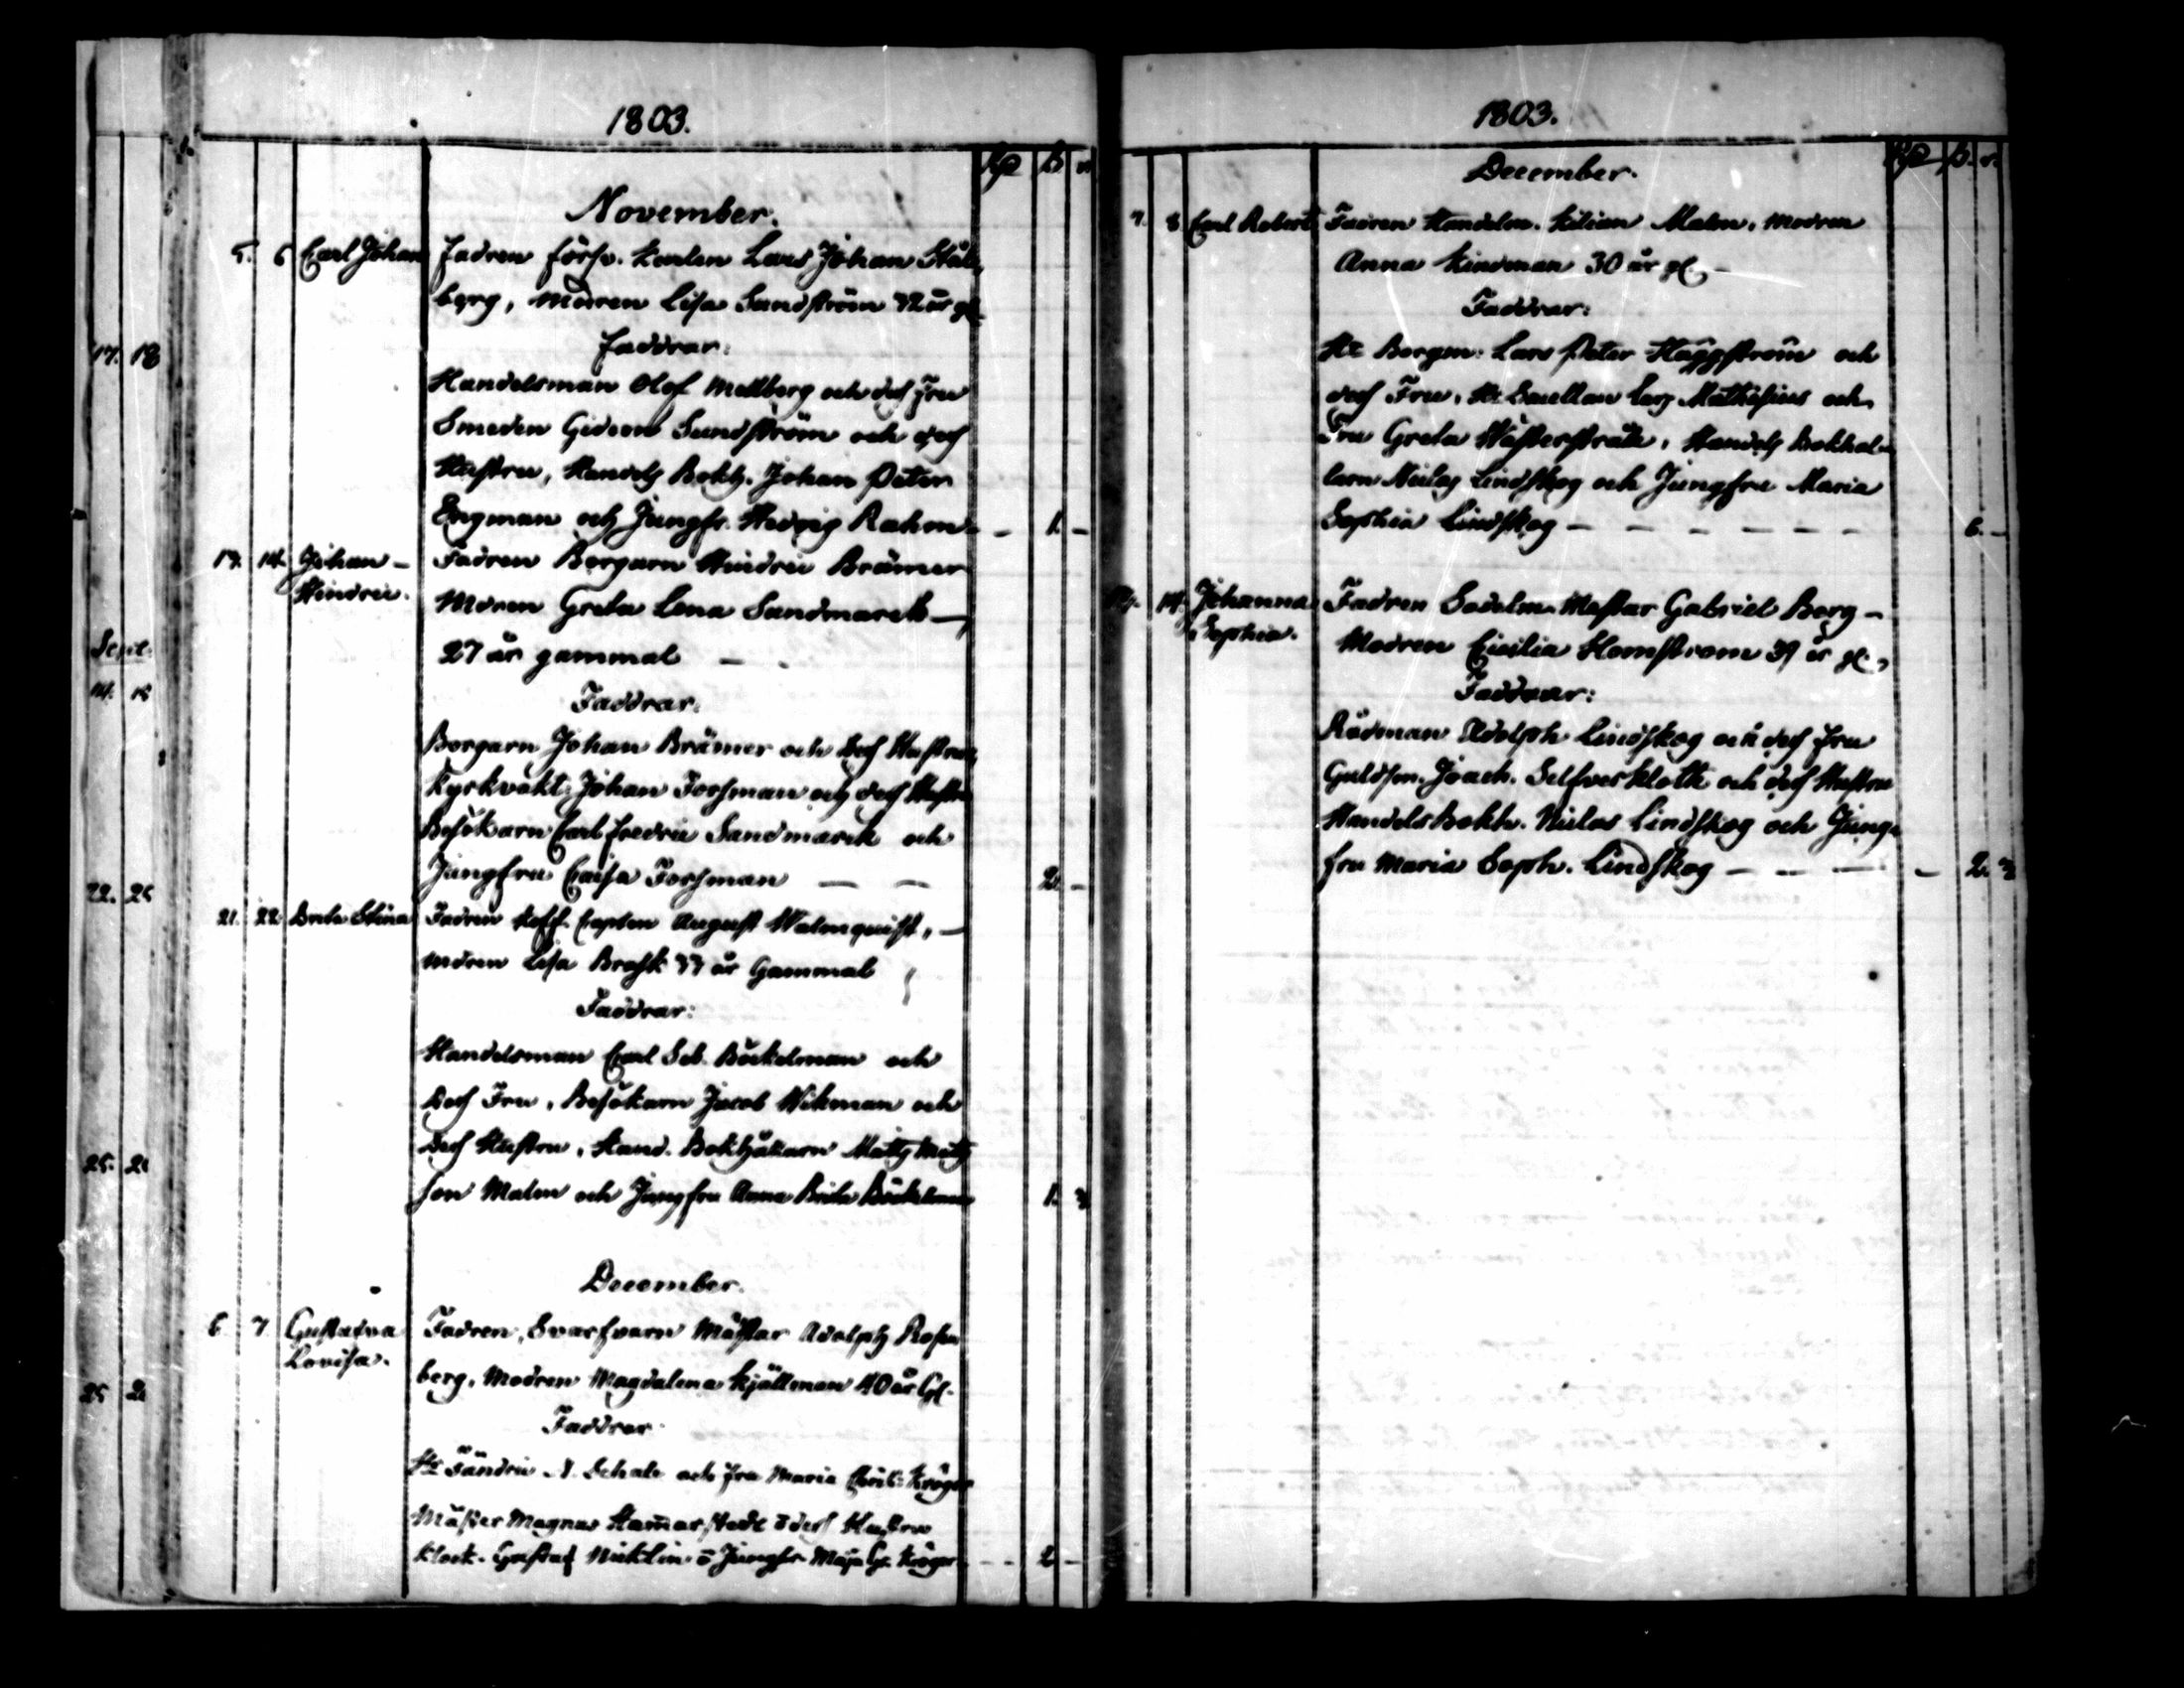 1803.
November.
5. 6 Carl Johan Fadren förso. Karlen Lars Johan Stål
berg, Modren Lisa Sundström 32 år gl.
Faddrar:
17. 18
Handelsman Olof Mellberg och des Fru
Smeden Gideon Sundström och des
Hustru, Handels Bokh. Johan Peter
Engman och Jungfr. Hedvig Rahm - - 1. -
13. 14. Johan - Fadren Borgarn Hindric Brämer
Hindric. Modren Greta Lena Sandmarck -
Sept. 27 år gammal - -
14. 15
Faddrar:
Borgarn Johan Brämer och des Hustru,
Kyrkvakt. Johan Forsman och des Hustru
Besökarn Carl Fredric Sandmarck och
Jungfru Caisa Forsman - - 2. -
22. 25
21. 22. Brita Stina Fadren Coopv. Capten August Malmquist, -
Modren Lisa Brask 33 år Gammal
Faddrar:
Handelsman Carl Seb. Böckelman och
Des Fru, Besökarn Jacob Wikman och
25. 2
Des Hustru, Hand. Bokhållarn Matts Matts
son Malm och Jungfru Anna Brita Böckelman 1.
December.
6 7 Gustafva Fadren, Svarfvarn Mästar Adolph Rosen
Lovisa. berg, Modren Magdalena Kjällman 40 år Gl.
25 2
Faddrar
Hr Fändric N. Schale och Fru Maria Christ: Kröger
Mäster Magnus Hamarstedt o des Hustru
Klock. Gustaf Nicklin o Jungfr Maja Gr. Kröger - - 2 -
1803.
December.
7. 8 Carl Robert Fadren Handelm. Kilian Malm, Modren
Anna Kindman 30 år gl. -
Faddrar:
Hr Borgm: Lars Peter Häggström och
des Fru, Hr Lars Mathesius och
Fru Greta Wästerstråle, Handels Bokhål-
larn Niclas Lindskog och Jungfru Maria
Sophia Lindskog - - - - - - 6. -
14. Johanna Fadren Sadelm. Mästar Gabriel Berg -
Sophia. Modren Cicilia Homström 39 år gl.
Faddrar:
Rådman Adolph Lindskog och des Fru
Guldsm. Joach. Selfverkloth och des Hustru
Handels Bokh. Niclas Lindskog och Jung-
fru Maria Soph. Lindskog - - - - 2.